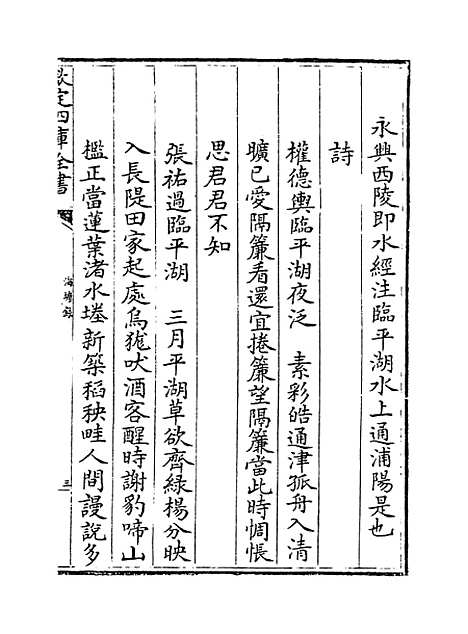 永興西陵即水經注臨平湖水上通浦陽是也
詩
權德輿臨平湖夜泛　素彩皓通津孤舟入清
曠已愛隔簾看還宜捲簾望隔簾當此時惆悵
思君君不知
張祐過臨平湖　三月平湖草欲齊綠楊分映
入長隄田家起處烏㹻吠酒客醒時謝豹啼山
檻正當蓮葉渚水塍新築稻秧畦人間謾說多
欽定四庫全書
海塘錄
三